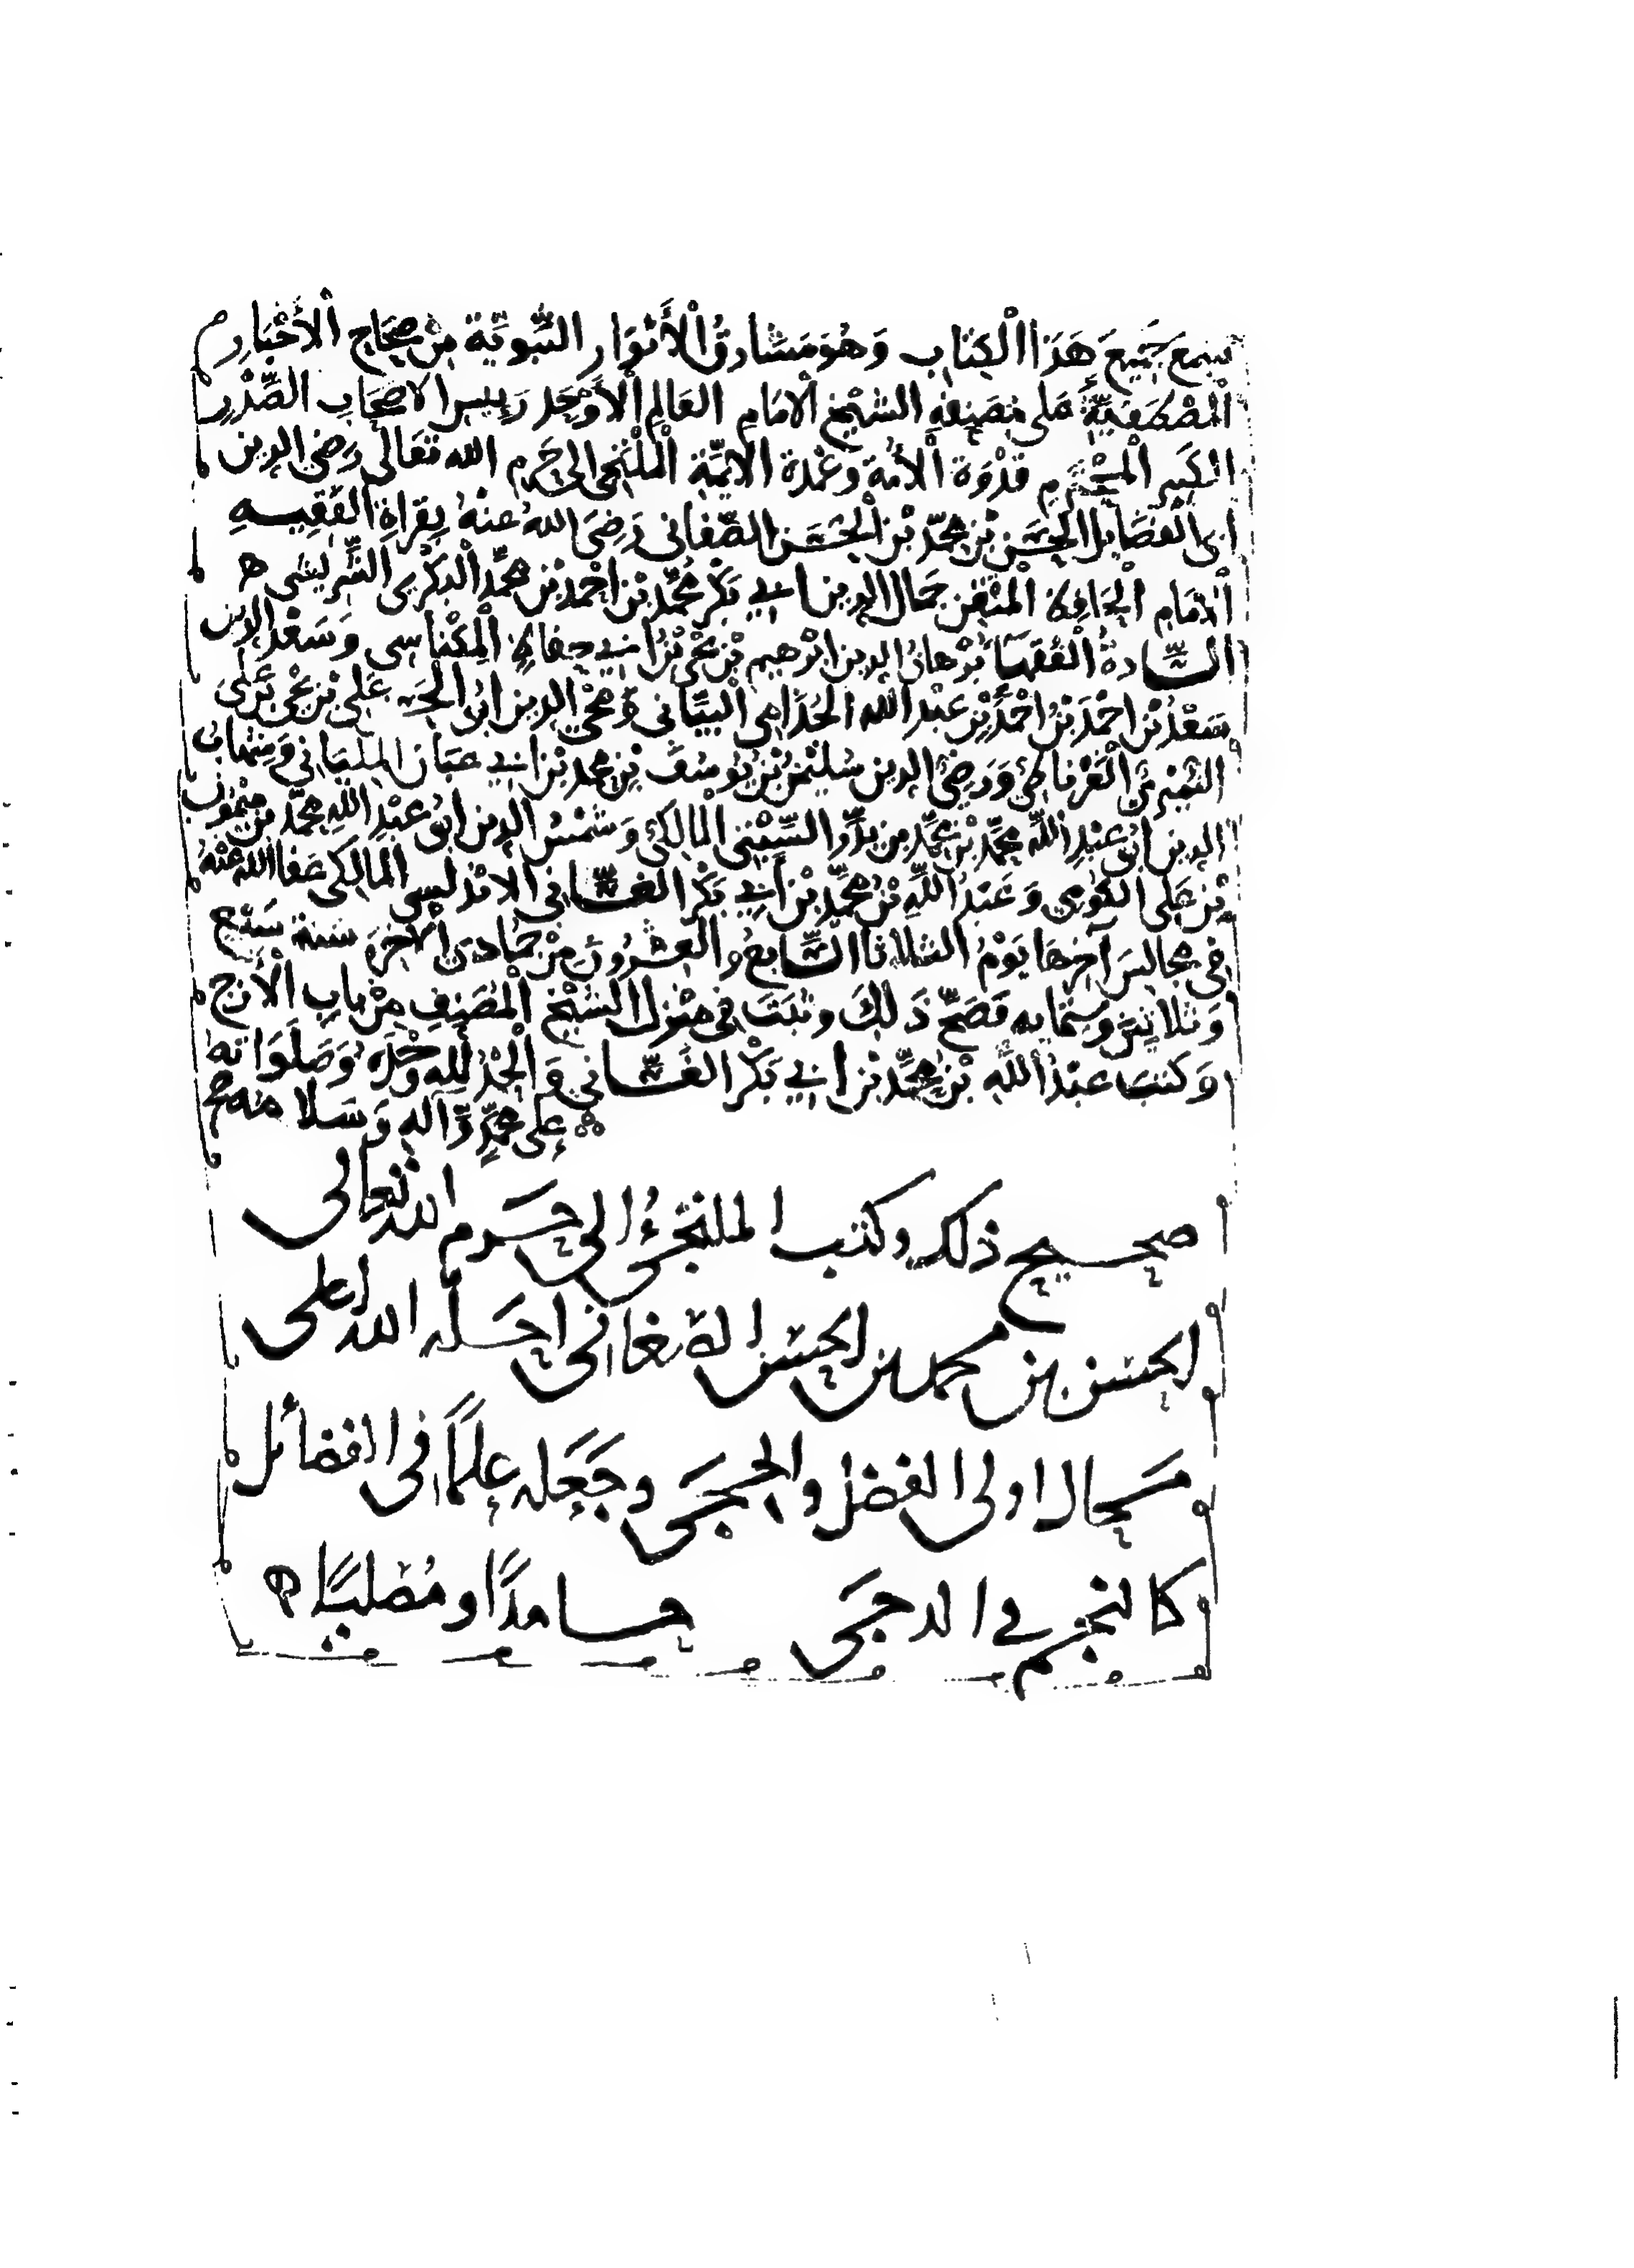 سَمِعَ جَمِيعَ هَذَا الْكِتَابِ وَهُوَ مَشَارِقُ الْأَنْوَارِ النَّبَوِيَّةِ مِنْ صِحَاحِ الْأَخْبَارِ
الْمُصْطَفَوِيَّةِ عَلى مُصَنِفِهِ الشَّيْخِ الْامَامِ العَالِمِ الْأَوْحَدِ رَييس الاصْحَابِ الصَّدْرِ
الكَبِيرِ الْمُحْتَرَمِ قدْوَة الْأُمَّة وَعُمْدة الايمَّة الْمُلْتَجِي الى حَرَمِ الله تَعَالَى رَضِيّ الدِينِ
ابى الْفَضَايِل الْحَسَنِ بْنِ مُحَمَّدِ بْنِ الْحَسَنِ الصَّغَانى رَضِيَ اللهُ عَنْهُ بِقِرَاةِ الفَقِيهِ
الْامَامِ الْحَافِظ الْمُتْقِنِ جَمَال الدِين ابي بَكْرٍ مُحَمَّد بْن احْمَد بْن مُحَمَّد الْبَكْرِى الشَّرِيشى ه
السَّادةُ الْفُقَهَا بُرْهَانُ الدين ابْرهيم بْن يَحْيَى بْن ابي حفاظ الْمِكْنَاسِى وَسَعْد الدِين
سَعْدُ بْنُ احْمَدَ بْن احْمَدَ بْن عَبْدِ الله الجُذَامِى الْبَيَّانى وَمُحْيِي الدين ابُو الحَسَن عَلِى بْن يَحْيَى بَن عَلى
النُّمَيْرِيُّ الْغَرْنَاطِيُّ وَرَضِيُّ الدين سُلَيْمَنُ بْنُ يُوسُفَ بْنِ محمد بْن ابي الْمِلْيَانِي وَشِهَابُ
الدِين ابُو عَبْدِ اللهِ مُحَمَّدُ بْنُ مُحَمَّدِ بن السَّبْتِى الْمَالِكِيُّ وَشَمْسُ الدِين ابُو عَبْدِ اللهِ مُحَمَّد بن مَيْمُون
بْن عَلى وَعَبْدُ اللهِ بْنُ مُحَمَّدِ بْنِ أَبِي بَكْر الغَسَّانِي الانْدَلسِي الْمَالِكى عَفَا اللهُ عَنْهُ
فِي مَجَالِسَ آخِرُهَا يَوْمُ الثلاثا السَّابِعُ وَالْعِشْرُونَ مِنْ جُمَادى الاخِرَة سنة سَبْع
وَثلاثِين وستّمايه فَصَحَّ ذَلِكَ وثَبَتَ فِي مَنْزِل الشَيْخ الْمُصَنِفِ مِنْ بَابِ الْأَزَجِ
وَكَتَبَ عَبْدُ اللهِ بْنُ مُحَمَّدِ بْن ابِي بَكْرٍ الغَسَّانِي وَالْحَمْدُ لِلهِ وَحْدَهُ وَصَلَوَاتُهُ
عَلى مُحَمَّدٍ وَّآلِهِ وَسَلامُهُ
صحيح ذلك وكتب الملتجئُ الى حَرَم الله تعالى
الحسَن بن محمد بن الحسَن الصغانى احلّه الله اعلى
مَحال اولى الفضل والحجى وجَعَله عَلمًا فى الفضائل
كالنجم في الدجى حامدًا ومُصَليًا